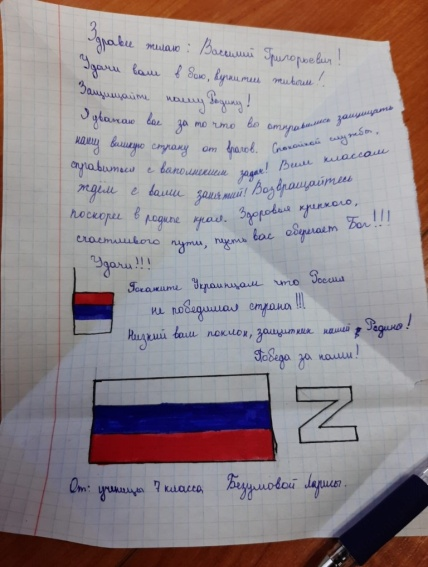 Здравее желаю: Василий Григорьевич!
Удачи вам в бою, вернитесь живым!
Защищайте нашу Родину!
Я уважаю вас за то что во отправились защищать
нашу великую страну от врагов. Спокойной службы,
справиться с выполнением задач! Всем классом
ждём с вами занятий! Возвращайтесь
поскорее в родные края. Здоровья крепкого,
счастливого пути, пусть вас оберегает Бог!!!
Удачи!!!
Покажите Украинцам что Россия
не победимая страна!!!
Низкий вам поклон, защитник нашей Родины!
Победа за нами!
Z
От: ученицы 7 класса, Безумовой Ларисы.